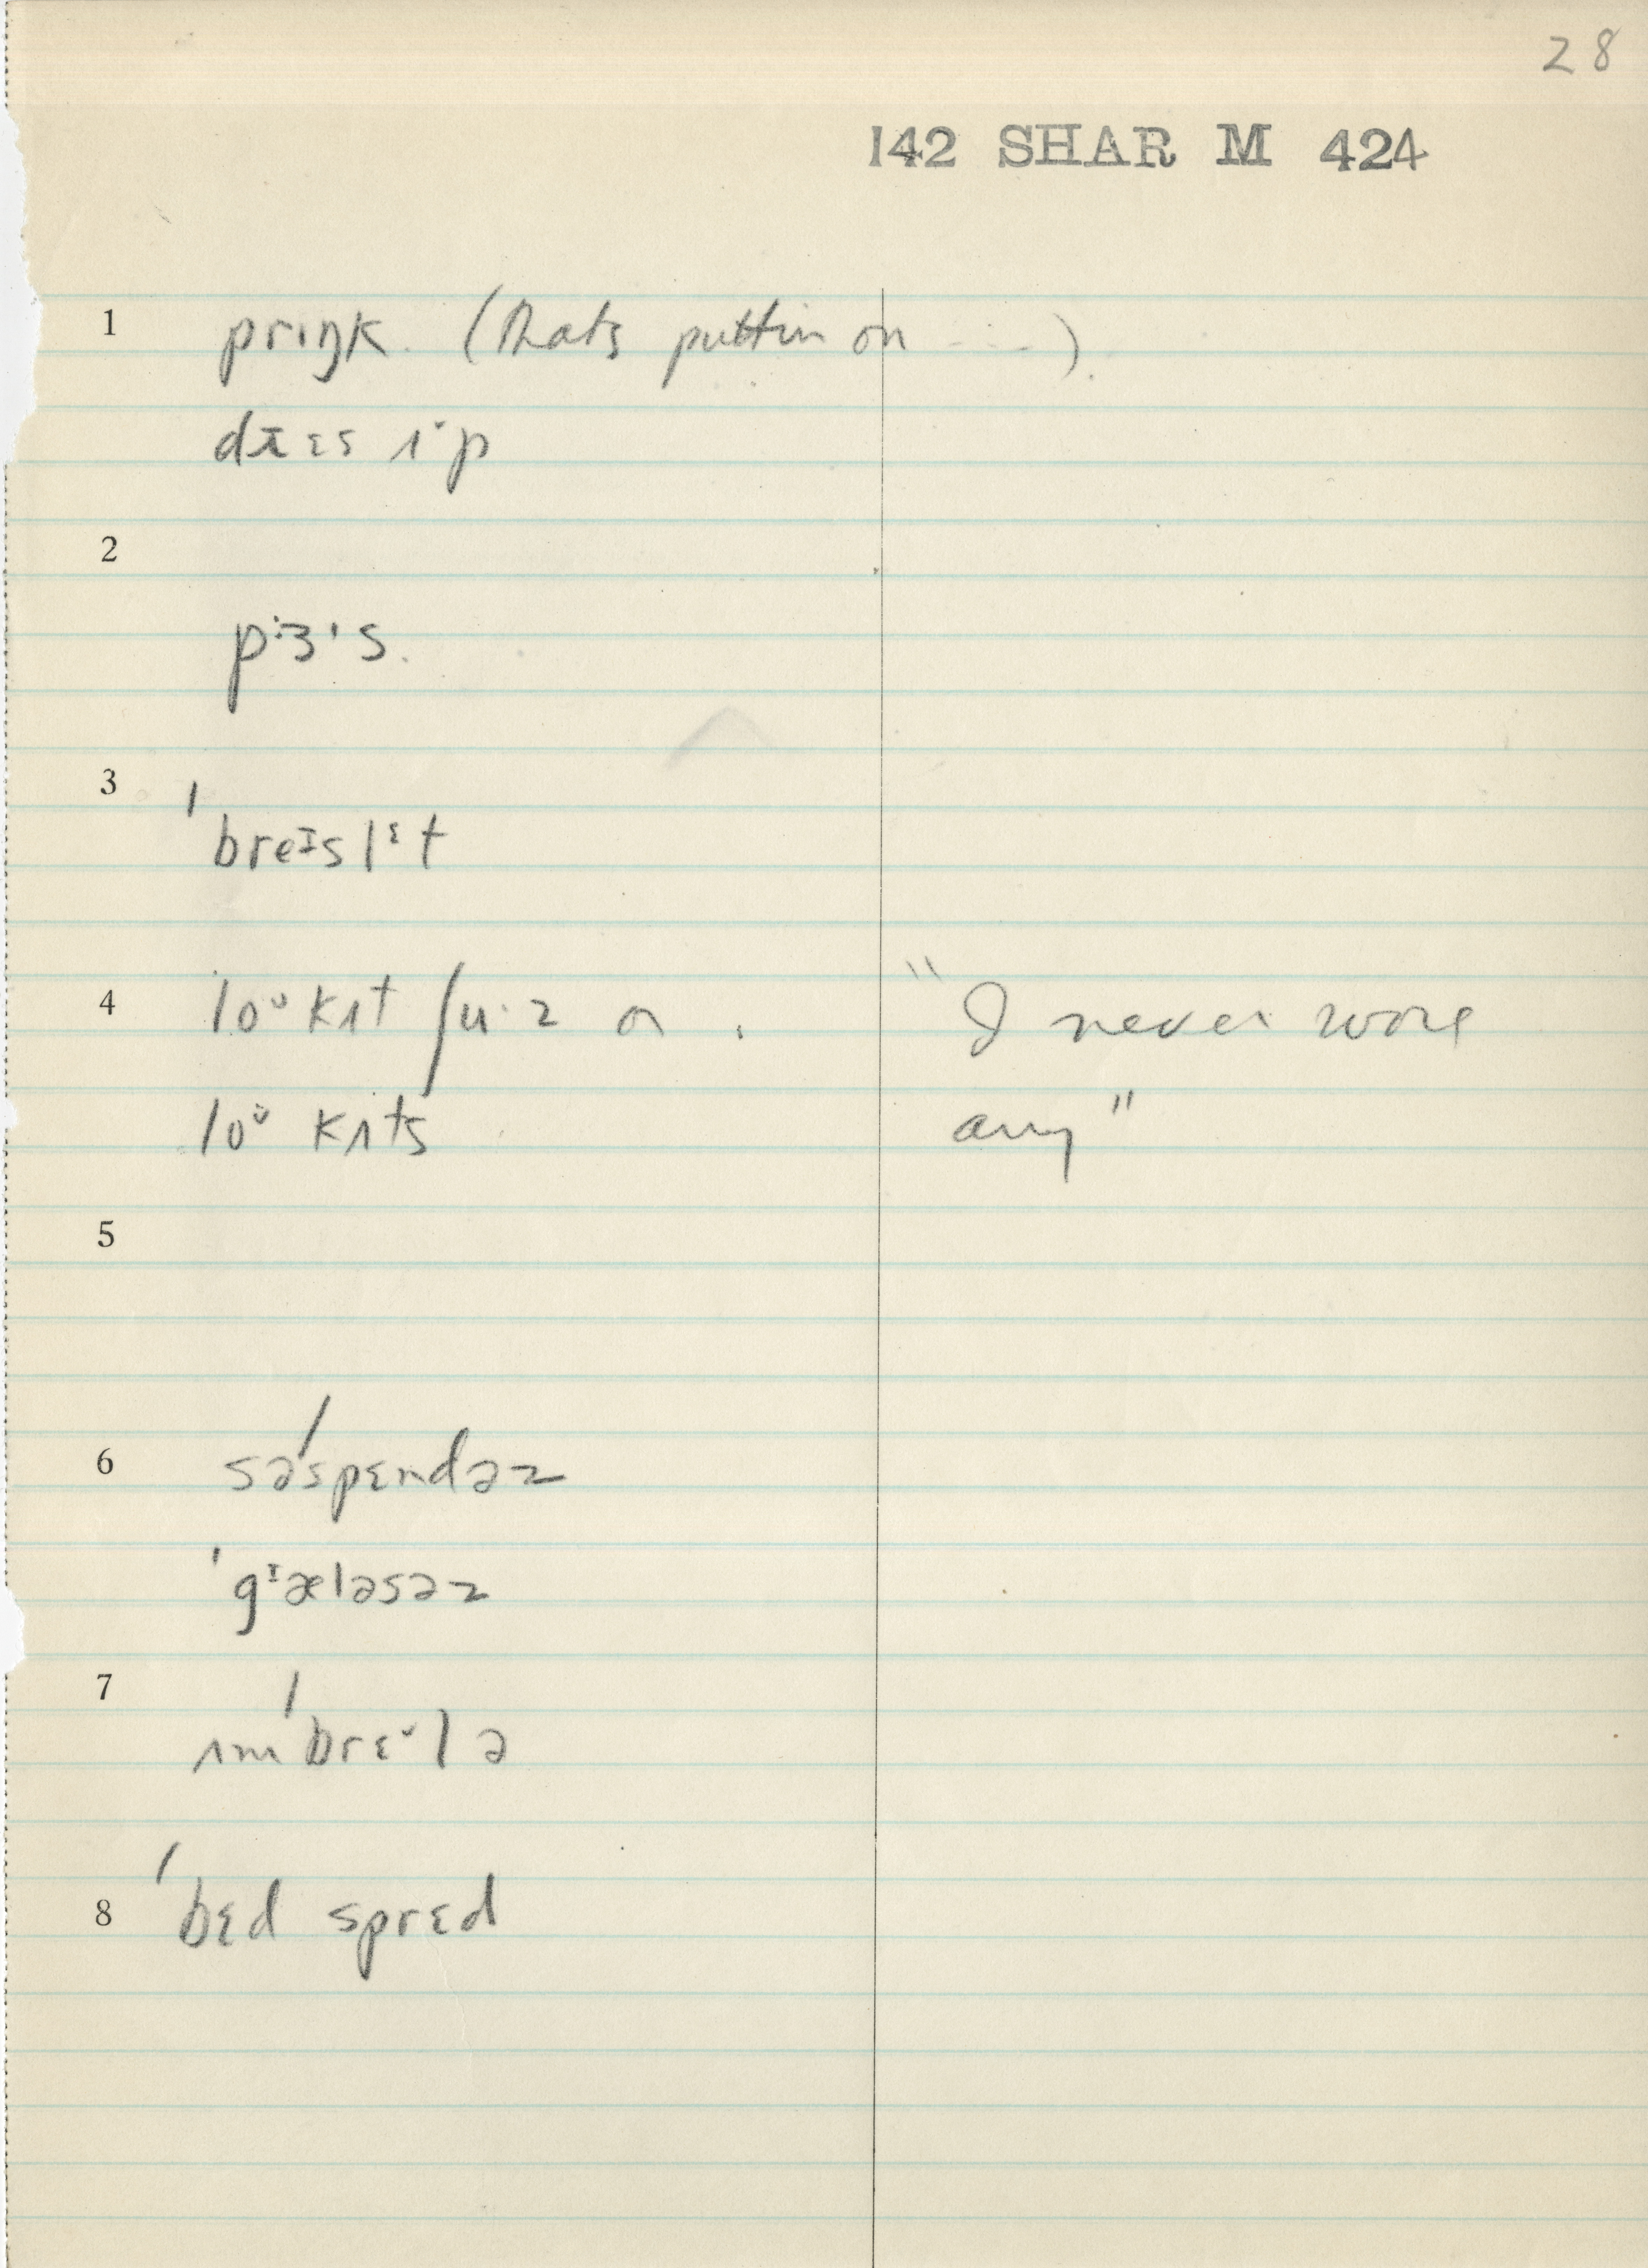 28
142 SHAR M 424
1 prɪŋk. (thats puttin on - - - ).
drɛs ʌˇp
2
pɜ's.
3 ˈbreɪslɛt
4 loᶷkʌt ʃu·z on . "I never wore
loᶷ kʌts any"
5
6 səˈspɛndəz
ˈgᶦæləsəz
7 ʌmˈbrɛˇlə
8 ˈbɛd sprɛd